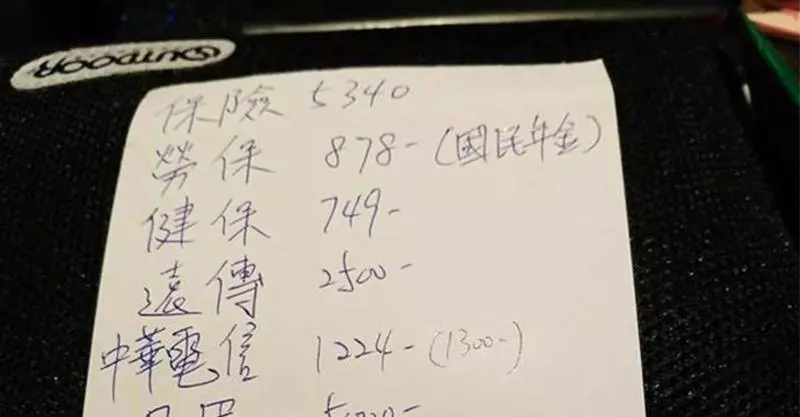 OUTDOOR
保險 5340
勞保 878-(國民年金)
健保 749-
遠傳 2500-
中華電信 1224-(1300-)